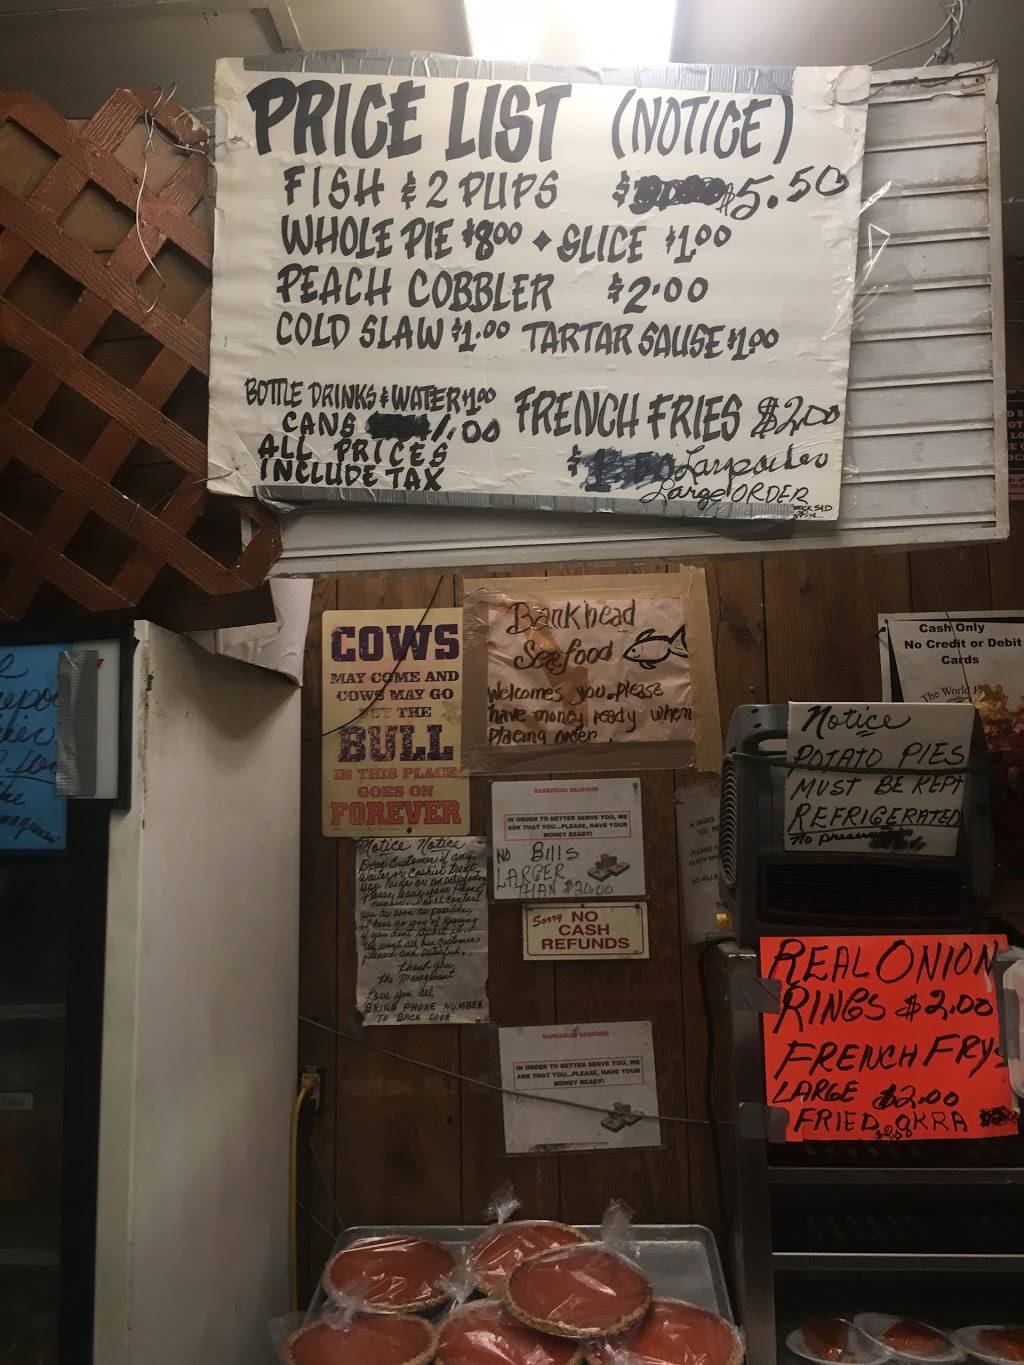 PRICE LIST (NOTICE)
FISH & 2 PUPS $5.50
WHOLE PIE $8.00 SLICE $1.00
PEACH COBBLER $2.00
COLD SLAW $1.00 TARTAR SAUSE $1.00
BOTTLE DRINKS & WATER $1.00
CANS 1.00
ALL PRICES
INCLUDE TAX
FRENCH FRIES $2.00
Large ORDER
COWS
MAY COME AND
COWS MAY GO
BUT THE
BULL
IN THIS PLACE
GOES ON
FOREVER
Bankhead
Seafood
Welcomes you. please
have money ready when
placing order.
Cash Only
No Credit or Debit
Cards
The World
Notice
POTATO PIES
MUST BE KEPT
REFRIGERATED
No
BANKHEAD SEAFOOD
IN ORDER TO BETTER SERVE YOU, WE
ASK THAT YOU...PLEASE, HAVE YOUR
MONEY READY!
NO BILLS
LARGER
THAN $20.00
Sorry NO
CASH
REFUNDS
Notice Notice
Dear Customer if any
thank you
the Management
Love you all
BRING PHONE NUMBER
TO BACK DOOR
BANKHEAD SEAFOOD
IN ORDER TO BETTER SERVE YOU, WE
ASK THAT YOU...PLEASE, HAVE YOUR
MONEY READY!
REAL ONION
RINGS $2.00
FRENCH FRYS
LARGE $2.00
FRIED OKRA
$2.00